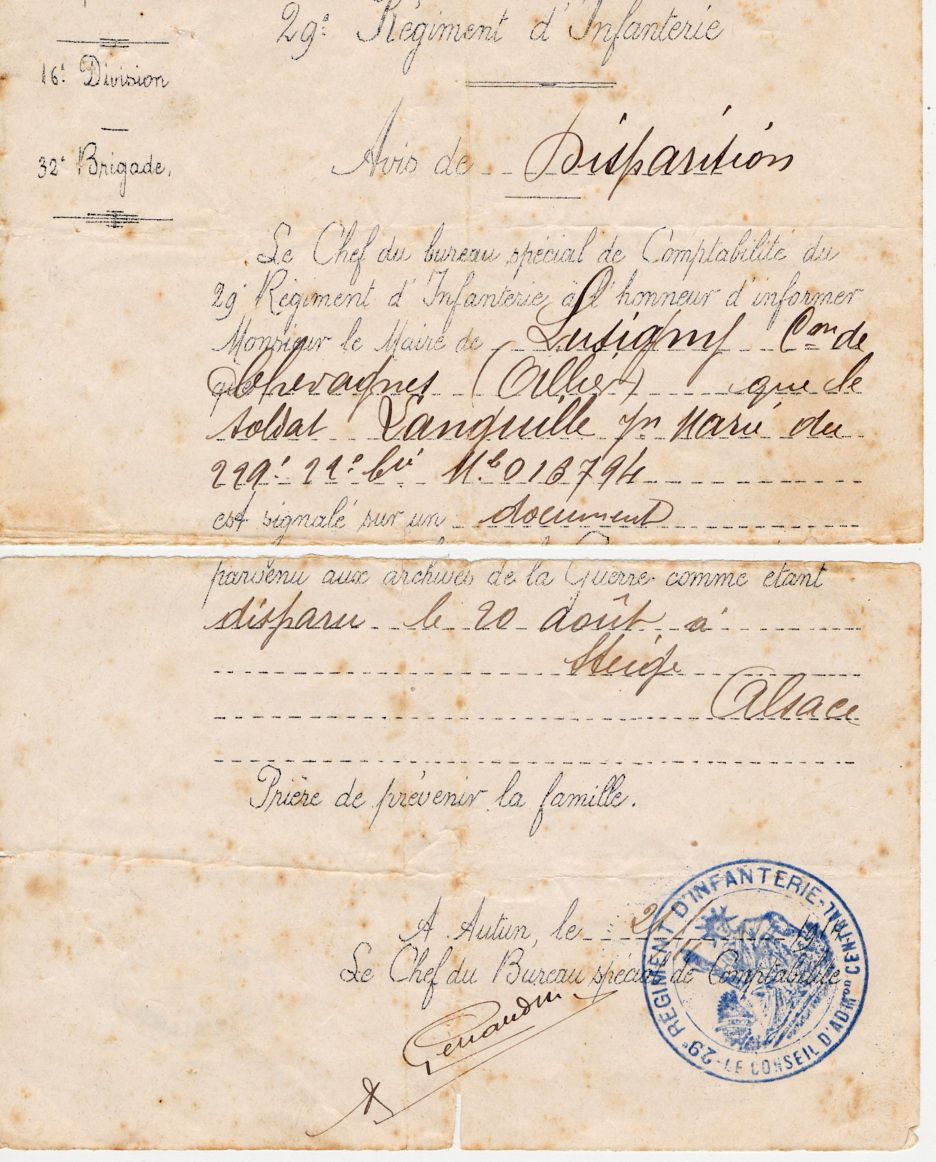 29e Régiment d'Infanterie
16e Division
32e Brigade.
Avis de Disparition
Le Chef du bureau spécial de Comptabilité du
29e Régiment d'Infanterie à l'honneur d'informer
Monsieur le Maire de Lusigny Con de
Chevagnes (Allier) que le
soldat Languille Jn Marie du
229e 22e Cie Mle 013794
est signalé sur un document
parvenu aux archives de la Guerre comme étant
disparu le 20 août à
Steige
Alsace
Prière de prévenir la famille.
A Autun, le
Le Chef du Bureau spécial de Comptabilité
29e RÉGIMENT D'INFANTERIE - LE CONSEIL D'ADMon CENTRAL